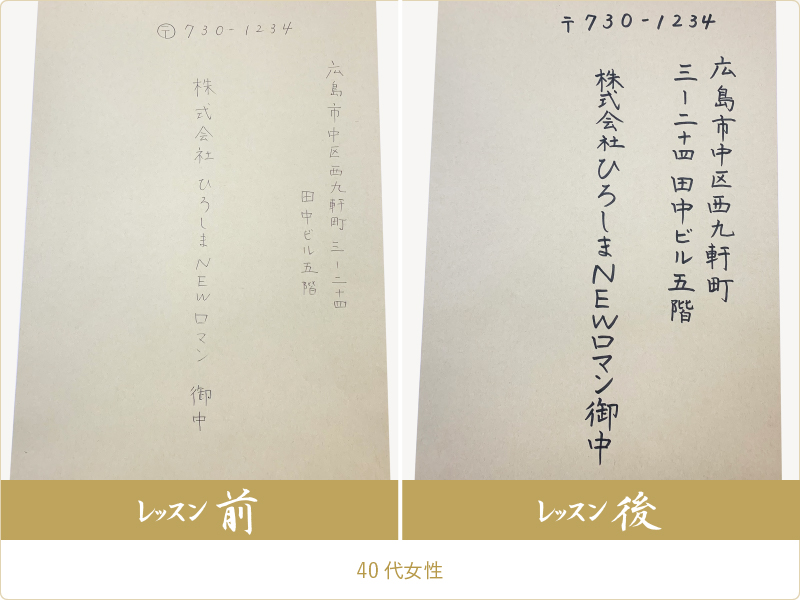 〒730-1234
広島市中区西九軒町 三-二十四
田中ビル五階
株式会社 ひろしまNEWロマン 御中
レッスン前
〒730-1234
広島市中区西九軒町
三-二十四 田中ビル五階
株式会社ひろしまNEWロマン御中
レッスン後
40代女性